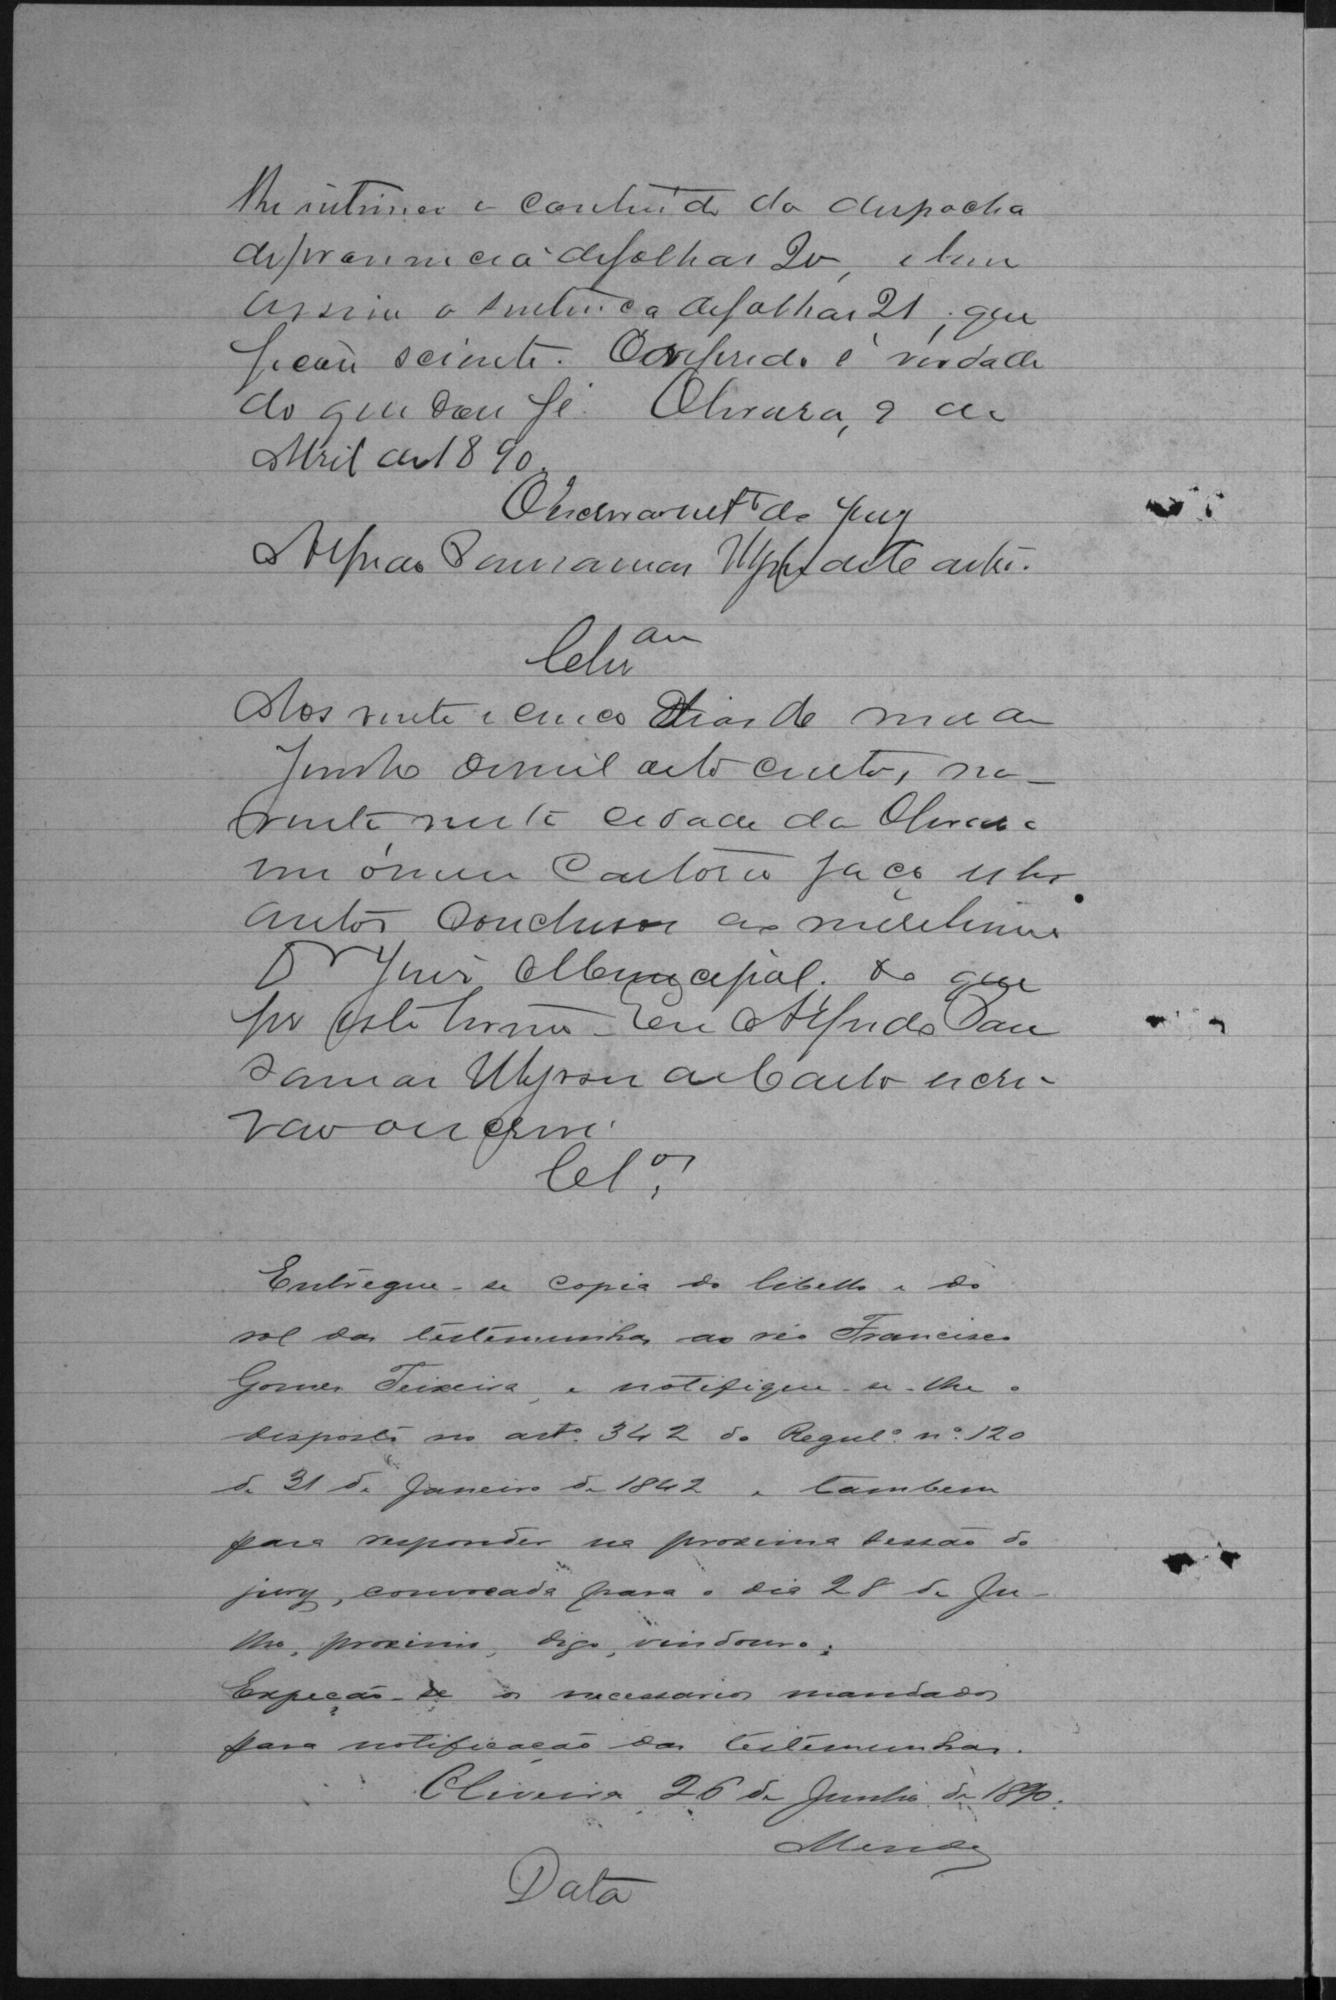 lhe intimei o conteúdo do despacho
de pronuncia de folhas 20, e bem
assim a sentença de folhas 21, que
ficou sciente. O referido é verdade
do que dou fé. Oliveira, 9 de
Abril de 1890.
O escrivam int.º do jury
Alfredo
Cls. am
Aos vinte e cinco dias do mez de
Junho de mil oito centos, no-
venta nesta cidade da Oliveira
em o meu Cartorio faço estes
autos conclusos ao meretissimo
Dr Juis Municipal. do que
fis este termo. Eu Alfredo
escri-
vao o escrevi.
Cls.
Entregue-se copia do libello e do
rol das testemunhas ao réo Francisco
Gomes Teixeira, e notifique-se-lhe o
disposto no art.º 342 do Regul.º nº. 120
de 31 de Janeiro de 1842 e tambem
para responder na proxima sessão do
jury, convocada para o dia 28 de Ju-
lho, proximo, digo, vindouro.
Expeção-se os necessarios mandados
para notificação das testemunhas.
Oliveira 26 de Junho de 1890.
Mendes
Data